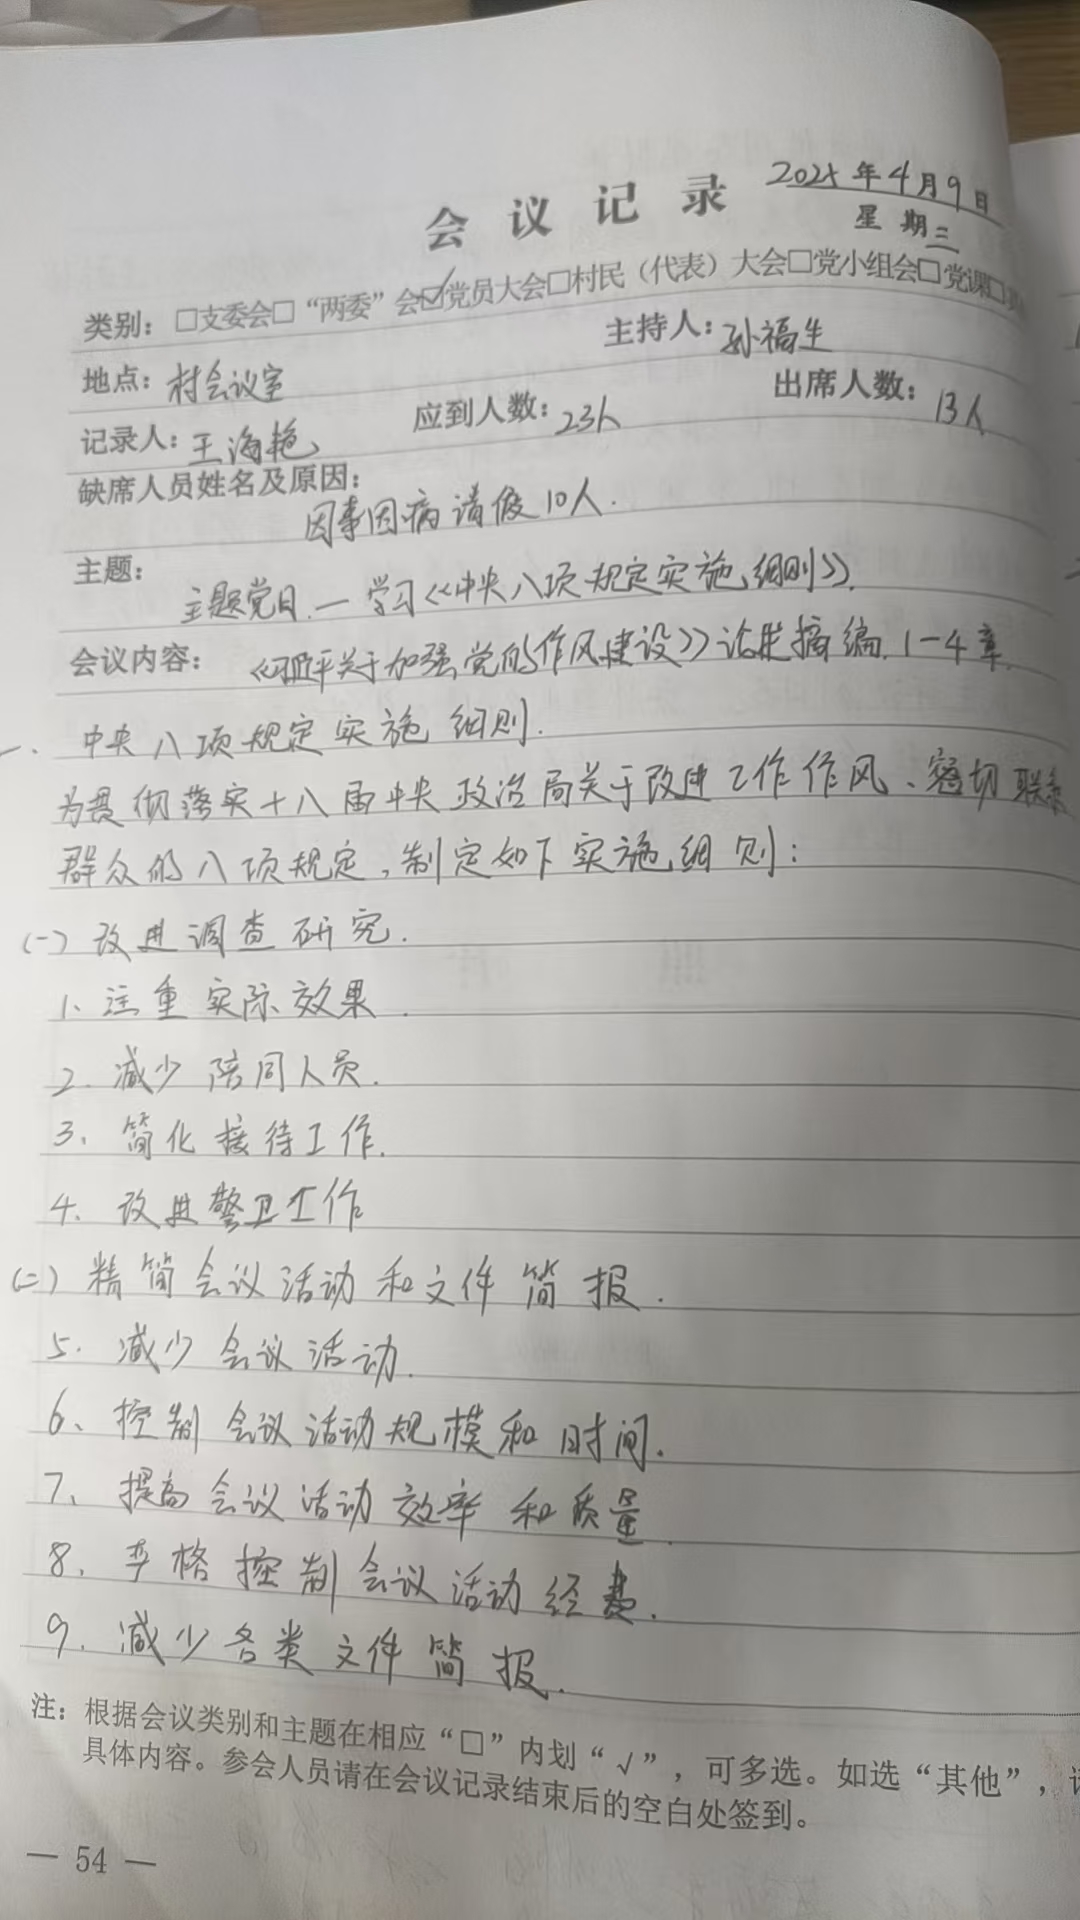 2025年4月9日
会议记录
星期三
类别：□支委会□“两委”会☑党员大会□村民（代表）大会□党小组会□党课□
地点：村会议室 主持人：孙福生
记录人：王海艳 应到人数：23人 出席人数：13人
缺席人员姓名及原因：
因事因病请假10人.
主题：
主题党日.—学习《中央八项规定实施细则》.
会议内容：《习近平关于加强党的作风建设》论述摘编.1-4章.
一、中央八项规定实施细则.
为贯彻落实十八届中央政治局关于改进工作作风、密切联系
群众的八项规定,制定如下实施细则:
(一)改进调查研究.
1、注重实际效果.
2.减少陪同人员.
3、简化接待工作.
4、改进警卫工作
(二)精简会议活动和文件简报.
5.减少会议活动.
6、控制会议活动规模和时间.
7、提高会议活动效率和质量.
8、严格控制会议活动经费.
9.减少各类文件简报.
注：根据会议类别和主题在相应“□”内划“√”，可多选。如选“其他”，
具体内容。参会人员请在会议记录结束后的空白处签到。
— 54 —